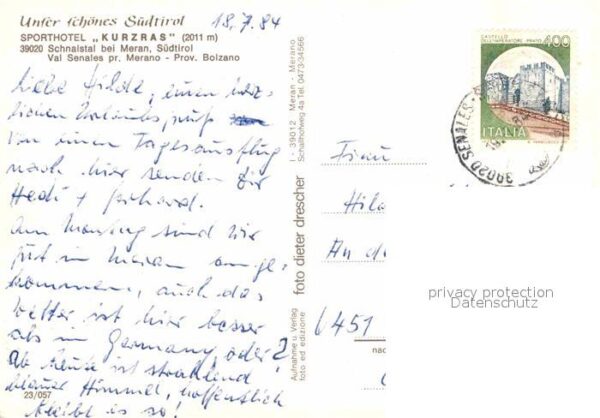 Unser schönes Südtirol
18.7.84
SPORTHOTEL „KURZRAS" (2011 m)
39020 Schnalstal bei Meran, Südtirol
Val Senales pr. Merano - Prov. Bolzano
Liebe Hilde, einen herz-
lichen Urlaubsgruß
von einem Tagesausflug
nach hier senden Dir
Hedi + Gerhard.
Am Montag sind wir
gut in Meran ange-
kommen, auch das
Wetter ist hier besser
als in Germany, oder?
Ab heute ist strahlend
blauer Himmel, hoffentlich
bleibt es so!
23/057
I - 39012 Meran - Merano
Schafferhofweg 4a Tel. 0473-34566
foto dieter drescher
Aufnahme u. Verlag
foto ed edizione
CASTELLO
DELL'IMPERATORE · PRATO
400
ITALIA
39020 SENALES
Frau
Hil
An d
6451
nac
privacy protection
Datenschutz